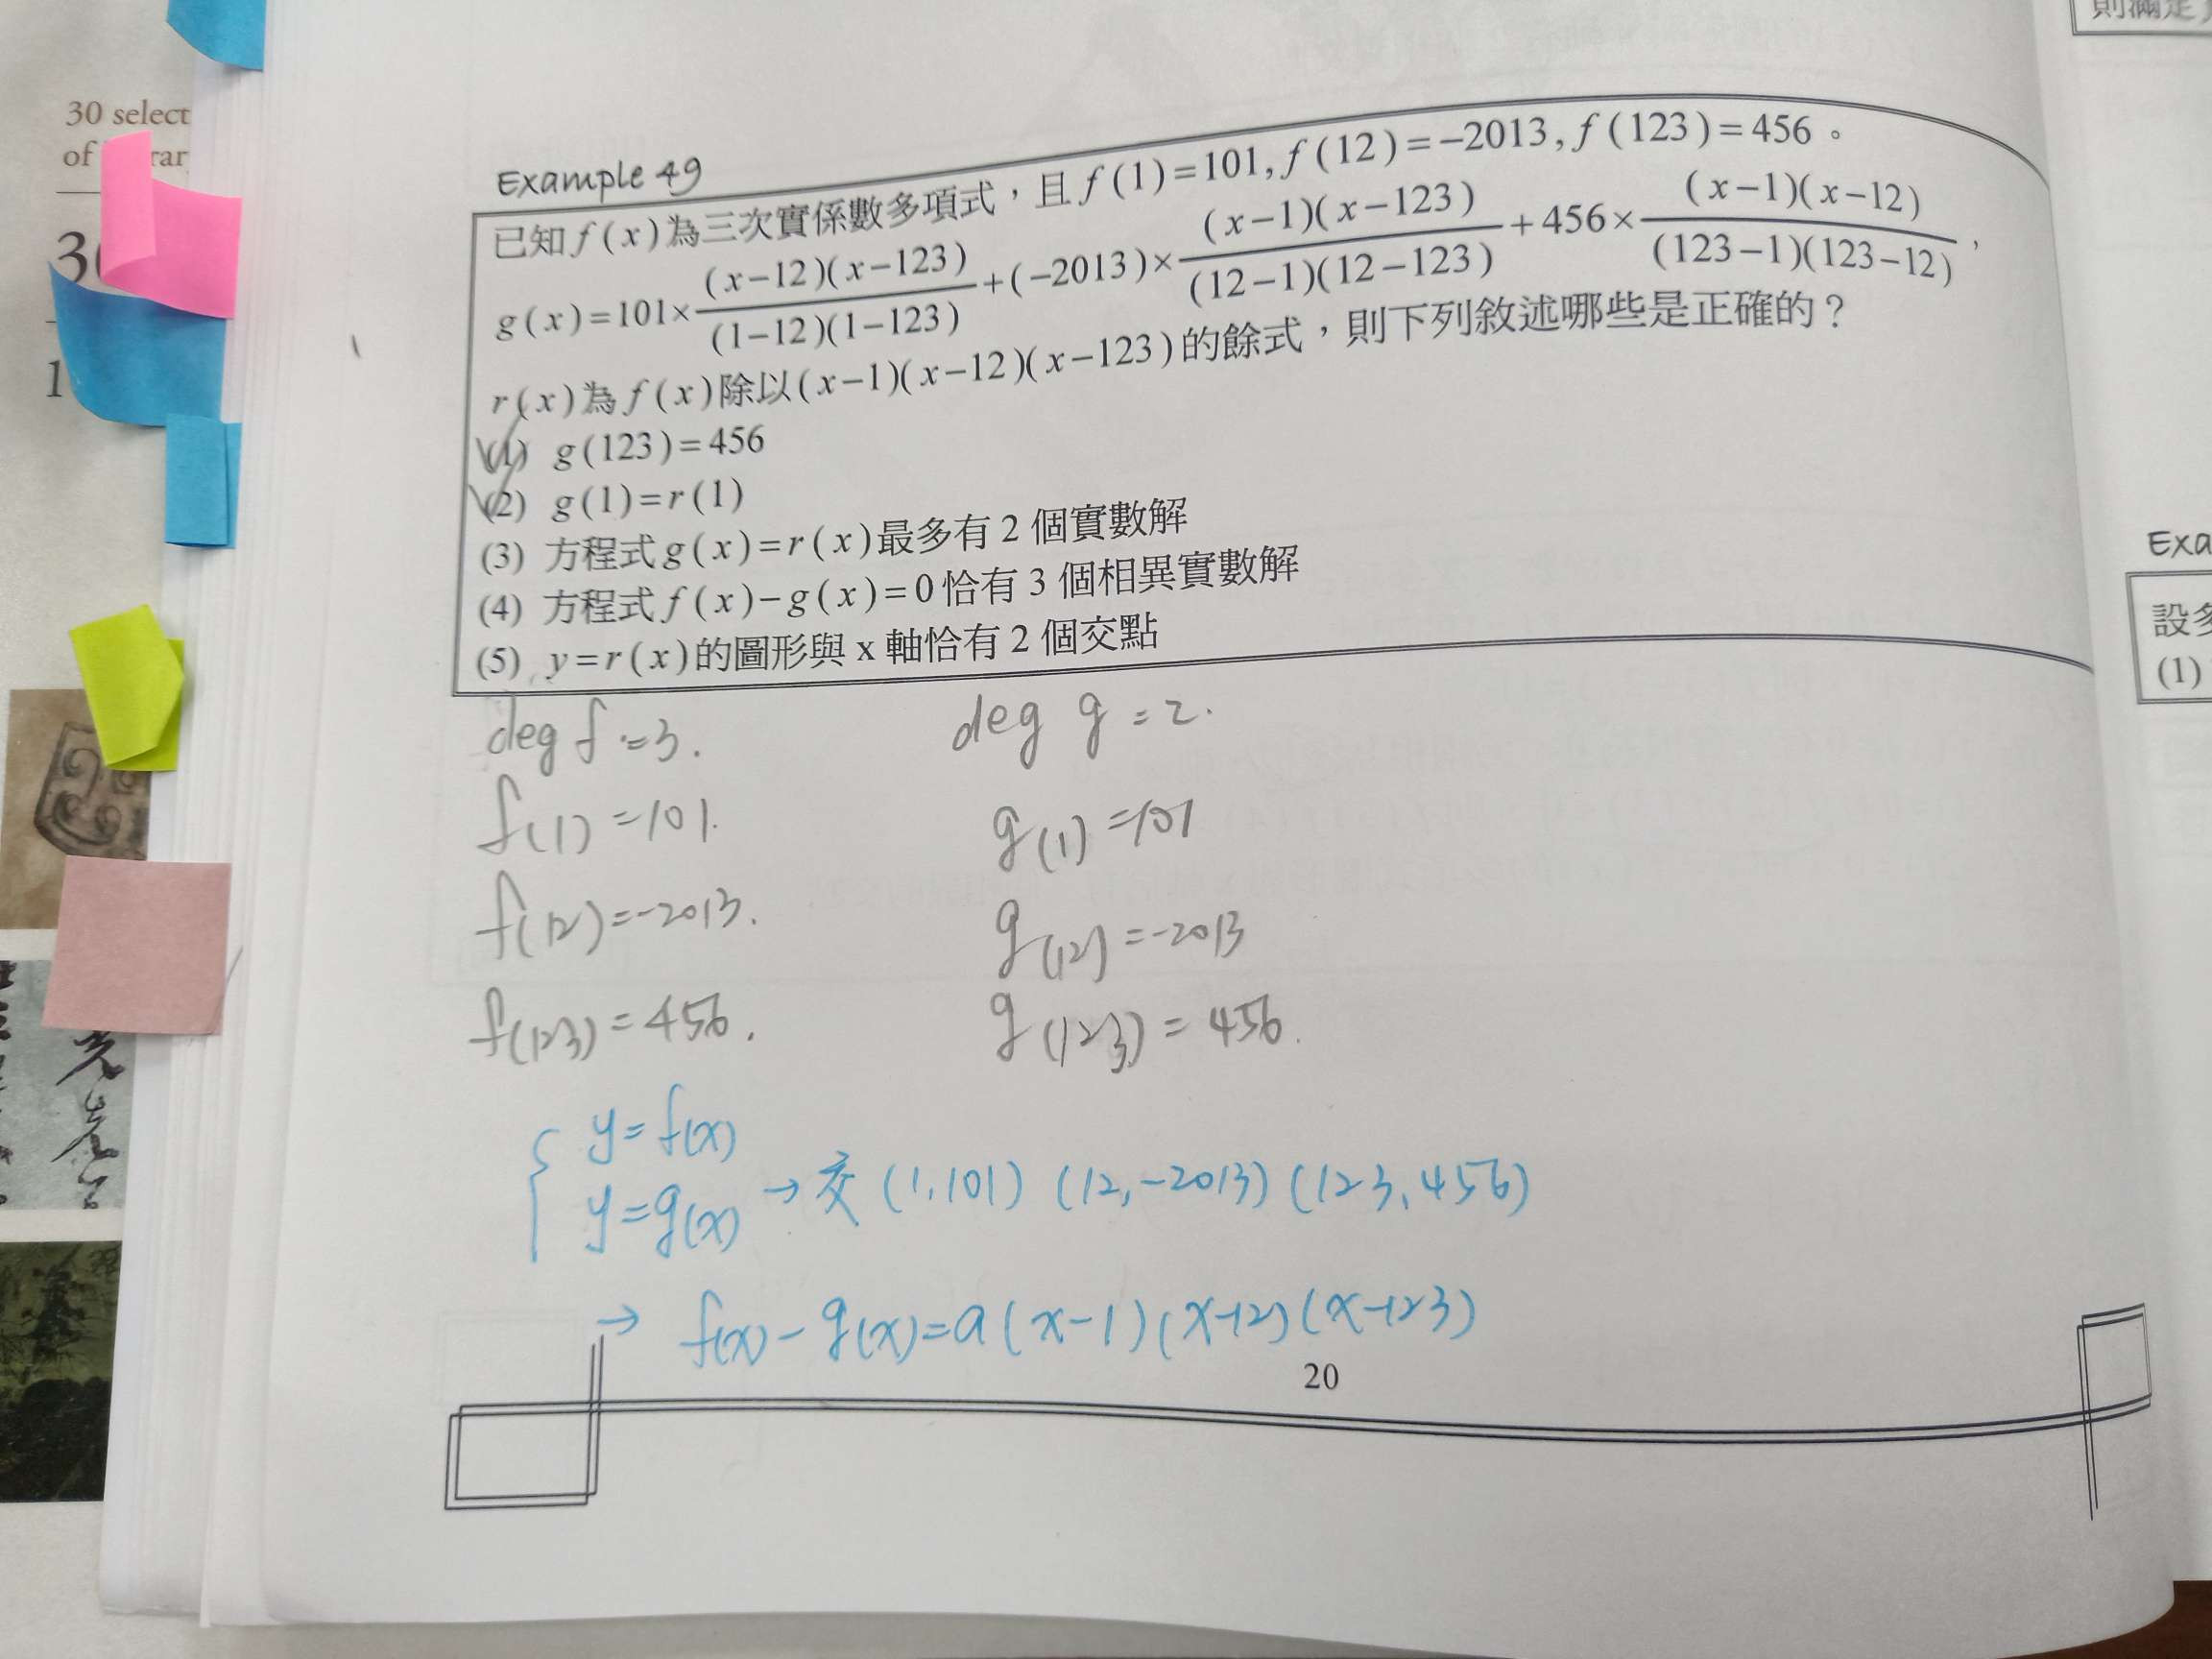 30 select
of
1
則滿足
Example 49
已知 f(x) 為三次實係數多項式，且 f(1)=101, f(12)=−2013, f(123)=456。
g(x)=101×\frac{(x−12)(x−123)}{(1−12)(1−123)}+(−2013)×\frac{(x−1)(x−123)}{(12−1)(12−123)}+456×\frac{(x−1)(x−12)}{(123−1)(123−12)}，
r(x)為 f(x)除以(x−1)(x−12)(x−123)的餘式，則下列敘述哪些是正確的？
(1) g(123)=456
(2) g(1)=r(1)
(3) 方程式 g(x)=r(x)最多有 2 個實數解
(4) 方程式 f(x)−g(x)=0 恰有 3 個相異實數解
(5) y=r(x)的圖形與 x 軸恰有 2 個交點
deg f=3. deg g=2.
f(1)=101. g(1)=101
f(12)=-2013. g(12)=-2013
f(123)=456. g(123)=456.
y=f(x)
y=g(x) → 交 (1,101) (12,-2013) (123,456)
→ f(x)-g(x)=a(x-1)(x-12)(x-123)
20
Exa
設多
(1)